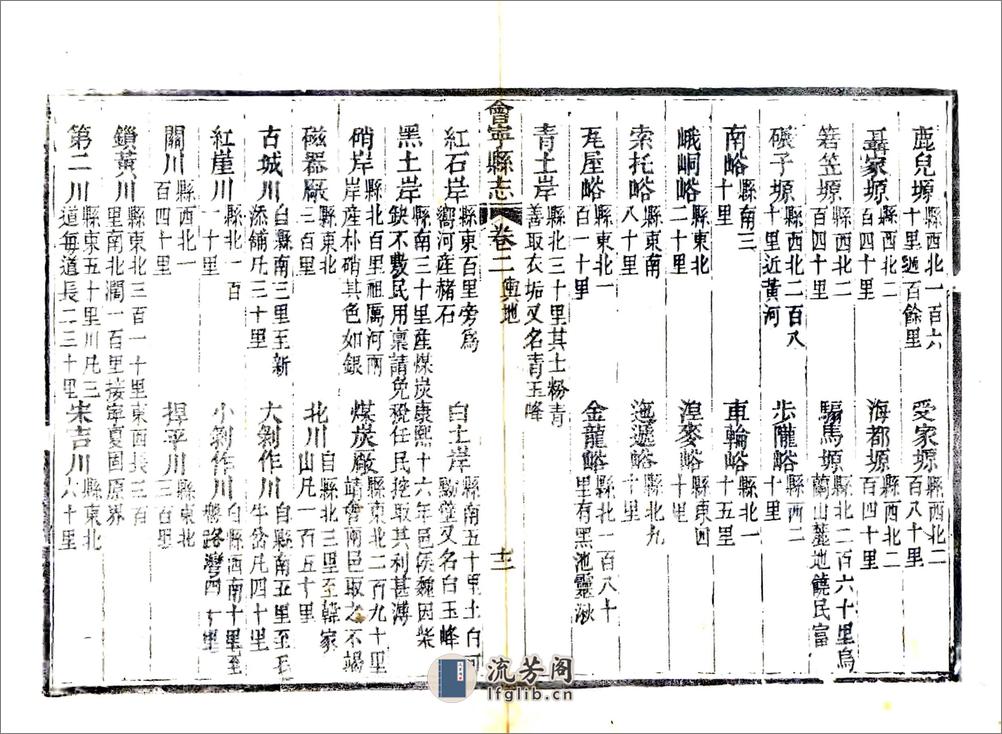 鹿兒塬縣西北一百六十里遞百餘里 受家塬縣西北二百八十里
聶家塬縣西北二百四十里 海都塬縣西北二百四十里
箬笠塬縣西北二百四十里 騸馬塬縣北二百六十里烏蘭山麓地饒民富
碾子塬縣西北二百八十里近黃河 步隴峪縣西二十里
南峪縣南三十里 車輪峪縣北一十五里
峨峒峪縣東北二十里 湟麥峪縣東四十里
索托峪縣東南八十里 迤遞峪縣北九十里
瓦屋峪縣東北一百一十里 金龍峪縣北一百八十里有黑池靈湫
青土岸縣北三十里其土粉青善取衣垢又名青玉峰
會寧縣志 卷二 輿地 十二
紅石岸縣東百里旁爲嚮河產赭石 白土岸縣南五十里土白可塗又名白玉峰
黑土岸縣南三十里產煤炭康熙十六年邑侯魏因柴缺不敷民用稟請免稅任民挖取其利甚溥
硝岸縣北百里祖厲河兩岸產朴硝其色如銀 煤炭厰縣東北二百九十里靖會兩邑取之不竭
磁器厰縣東北三百里 北川自縣北三里至韓家山凡一百五十里
古城川自縣南三里至新添鋪凡三十里 大剝作川自縣南五里至牛營凡四十里
紅崖川縣北一百二十里 小剝作川自縣西南十里至路灣四十里
關川縣西北一百四十里 捍平川縣東北三百里
鎖黃川縣東北三百一十里東西長三百里南北濶一百里接寧夏固原界
第二川縣東五十里川凡三道每道長二三十里 宋吉川縣東北六十里
流芳阁
lfglib.cn